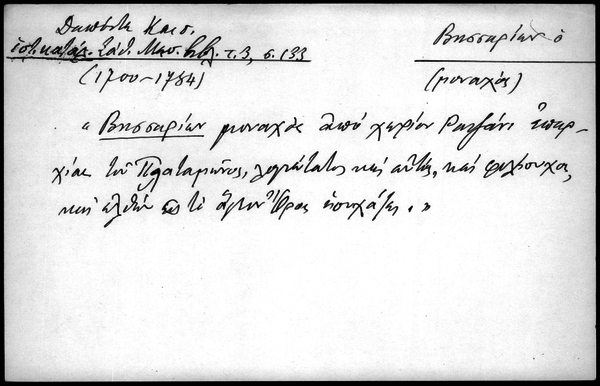 Δαπόντε Καισ.
ἱστ. κατάλ. Σάθ. Μεσ. Βιβλ. τ. 3, σ. 133
(1700-1784)
Βησσαρίων ὁ
(μοναχός)
« Βησσαρίων μοναχὸς ἀπὸ χωρίον Ραψάνι ἐπαρ-
χίας τοῦ Πλαταμῶνος, λογιώτατος καὶ αὐτός, καὶ φιλήσυχος,
καὶ ἐλθὼν εἰς τὸ ἅγιον Ὄρος ἡσυχάζει. »